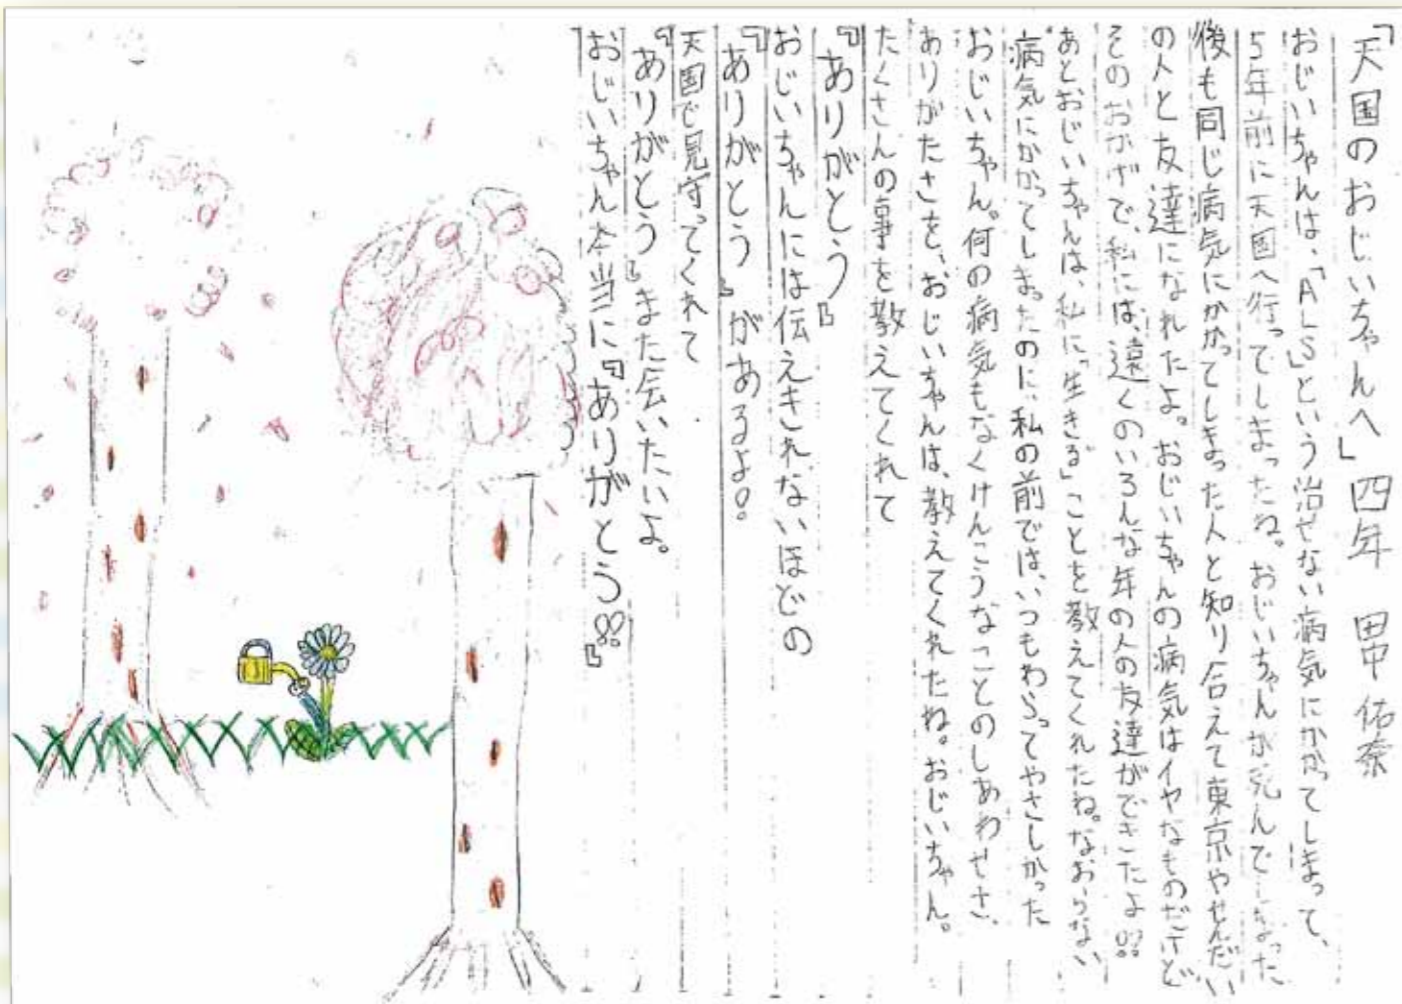 「天国のおじいちゃんへ」四年 田中佑奈
おじいちゃんは、「ALS」という治せない病気にかかってしまって、
5年前に天国へ行ってしまったね。おじいちゃんが死んでしまった
後も同じ病気にかかってしまった人と知り合えて東京やせんだい
の人と友達になれたよ。おじいちゃんの病気はイヤなものだけど
そのおかげで、私には、遠くのいろんな年の人の友達ができたよ!!
あとおじいちゃんは、私に「生きる」ことを教えてくれたね。なおらない
病気にかかってしまったのに、私の前では、いつもわらってやさしかった
おじいちゃん。何の病気もなくけんこうなことのしあわせさ、
ありがたさを、おじいちゃんは、教えてくれたね。おじいちゃん。
たくさんの事を教えてくれて
『ありがとう』
おじいちゃんには伝えきれないほどの
『ありがとう』があるよ!
天国で見守ってくれて
『ありがとう』また会いたいよ。
おじいちゃん本当に『ありがとう!!』